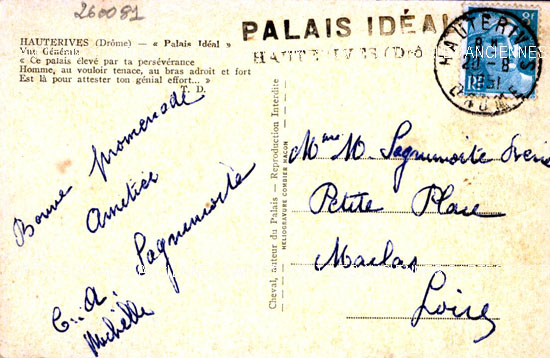 260081
PALAIS IDÉAL
HAUTERIVES (Drô
ANCIENNES
HAUTERIVES
DRÔME
8F
RF
HAUTERIVES (Drôme) — « Palais Idéal »
Vue Générale
« Ce palais élevé par ta persévérance
Homme, au vouloir tenace, au bras adroit et fort
Est là pour attester ton génial effort... »
T. D.
Bonne promenade
Amitiés
Sagnimorte
C. A.
Michelle
Cheval, auteur du Palais — Reproduction Interdite
HELIOGRAVURE COMBIER MACON
Mme M. Sagnimorte
Petite Place
Maclas
Loire